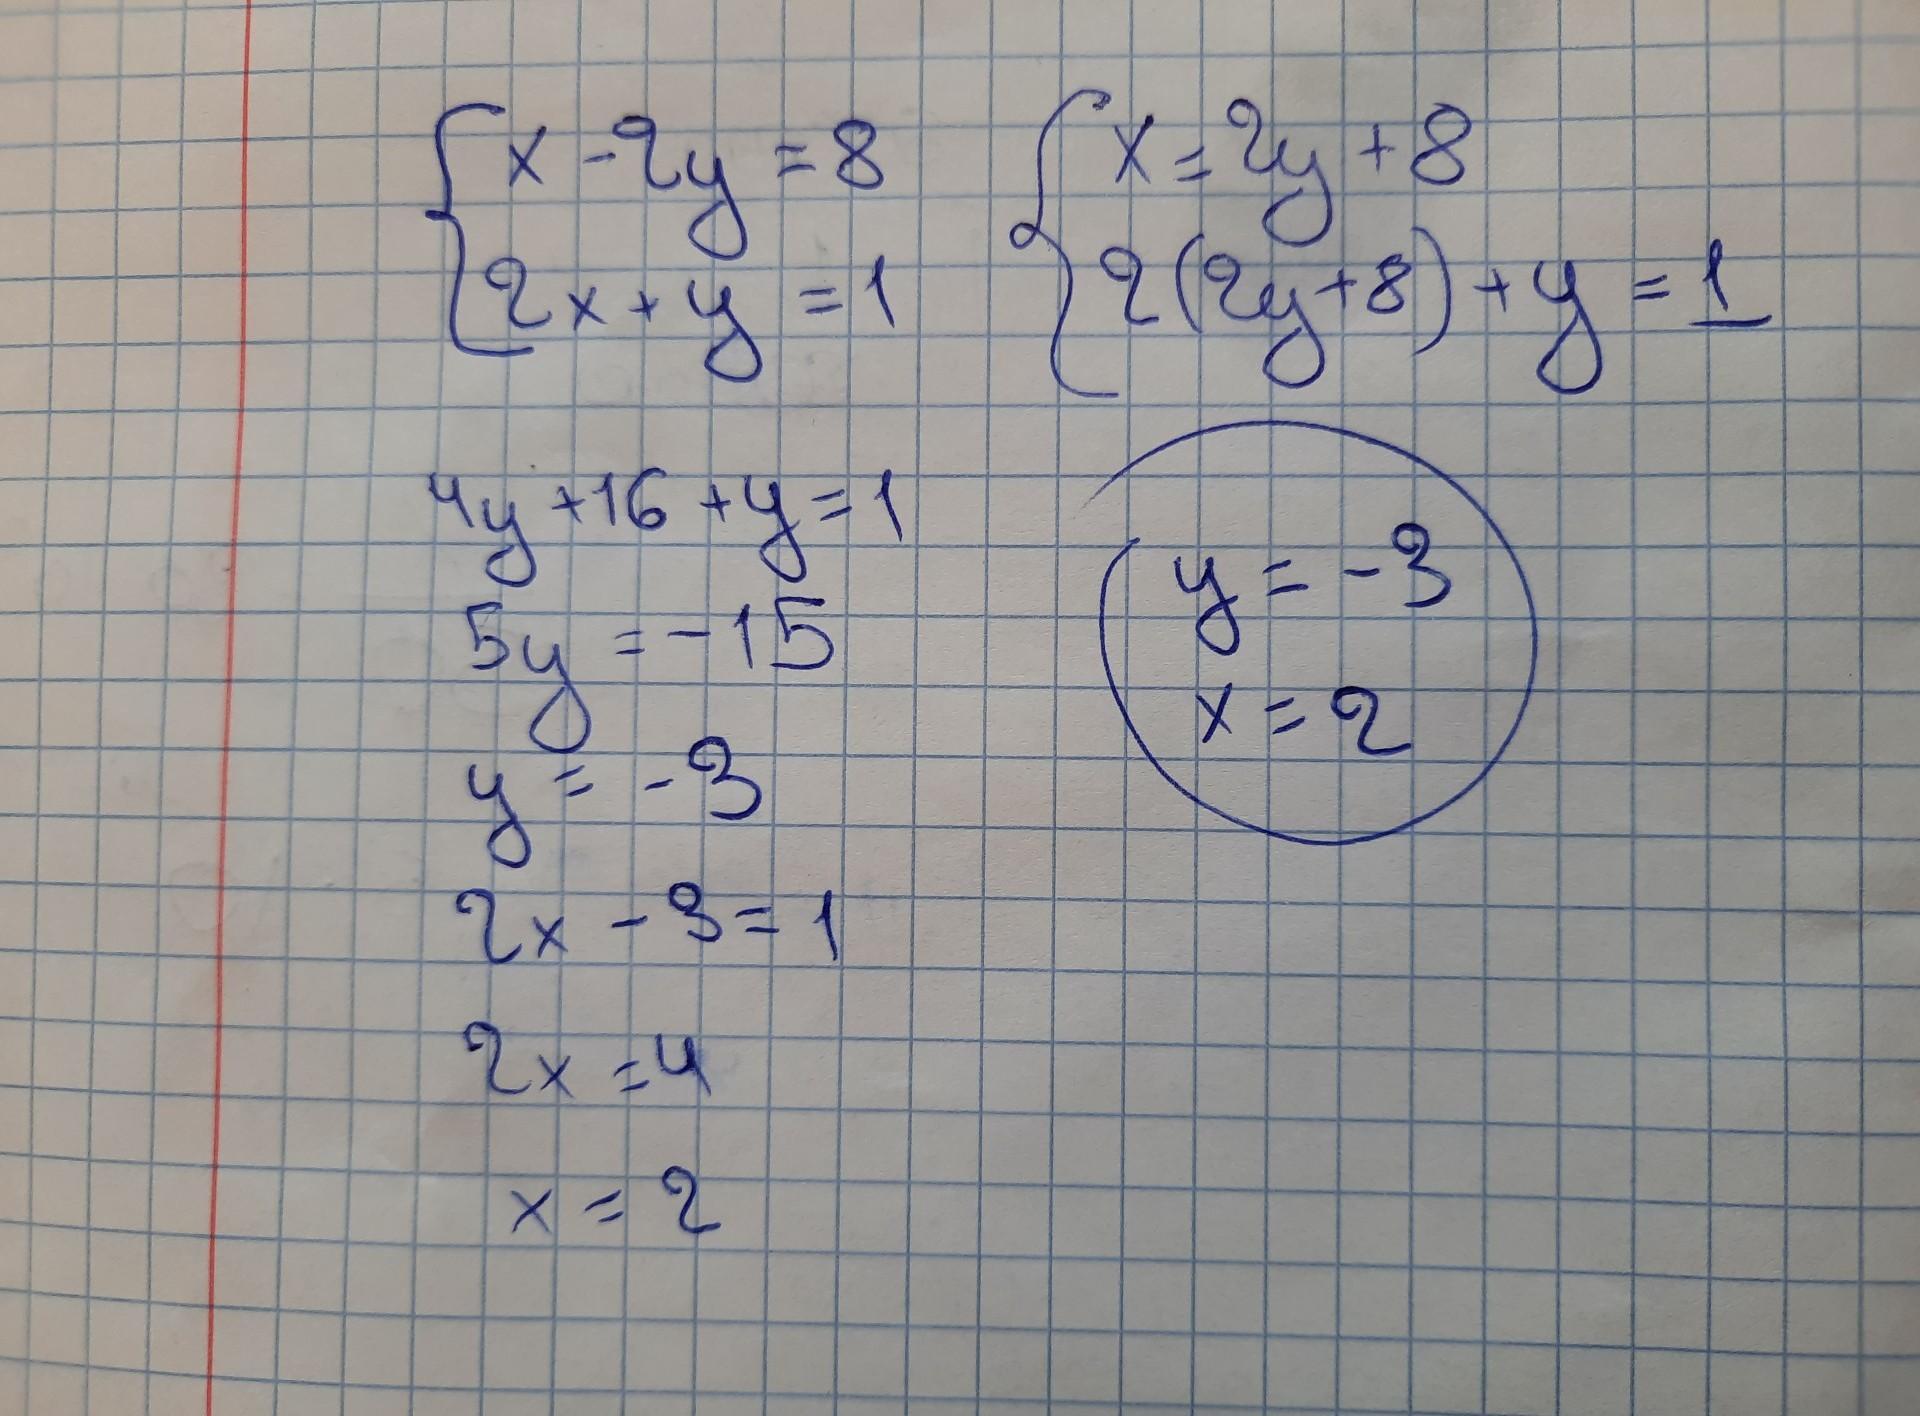 x - 2y = 8
2x + y = 1
x = 2y + 8
2(2y+8) + y = 1
4y + 16 + y = 1
5y = -15
y = -3
2x - 3 = 1
2x = 4
x = 2
y = -3
x = 2